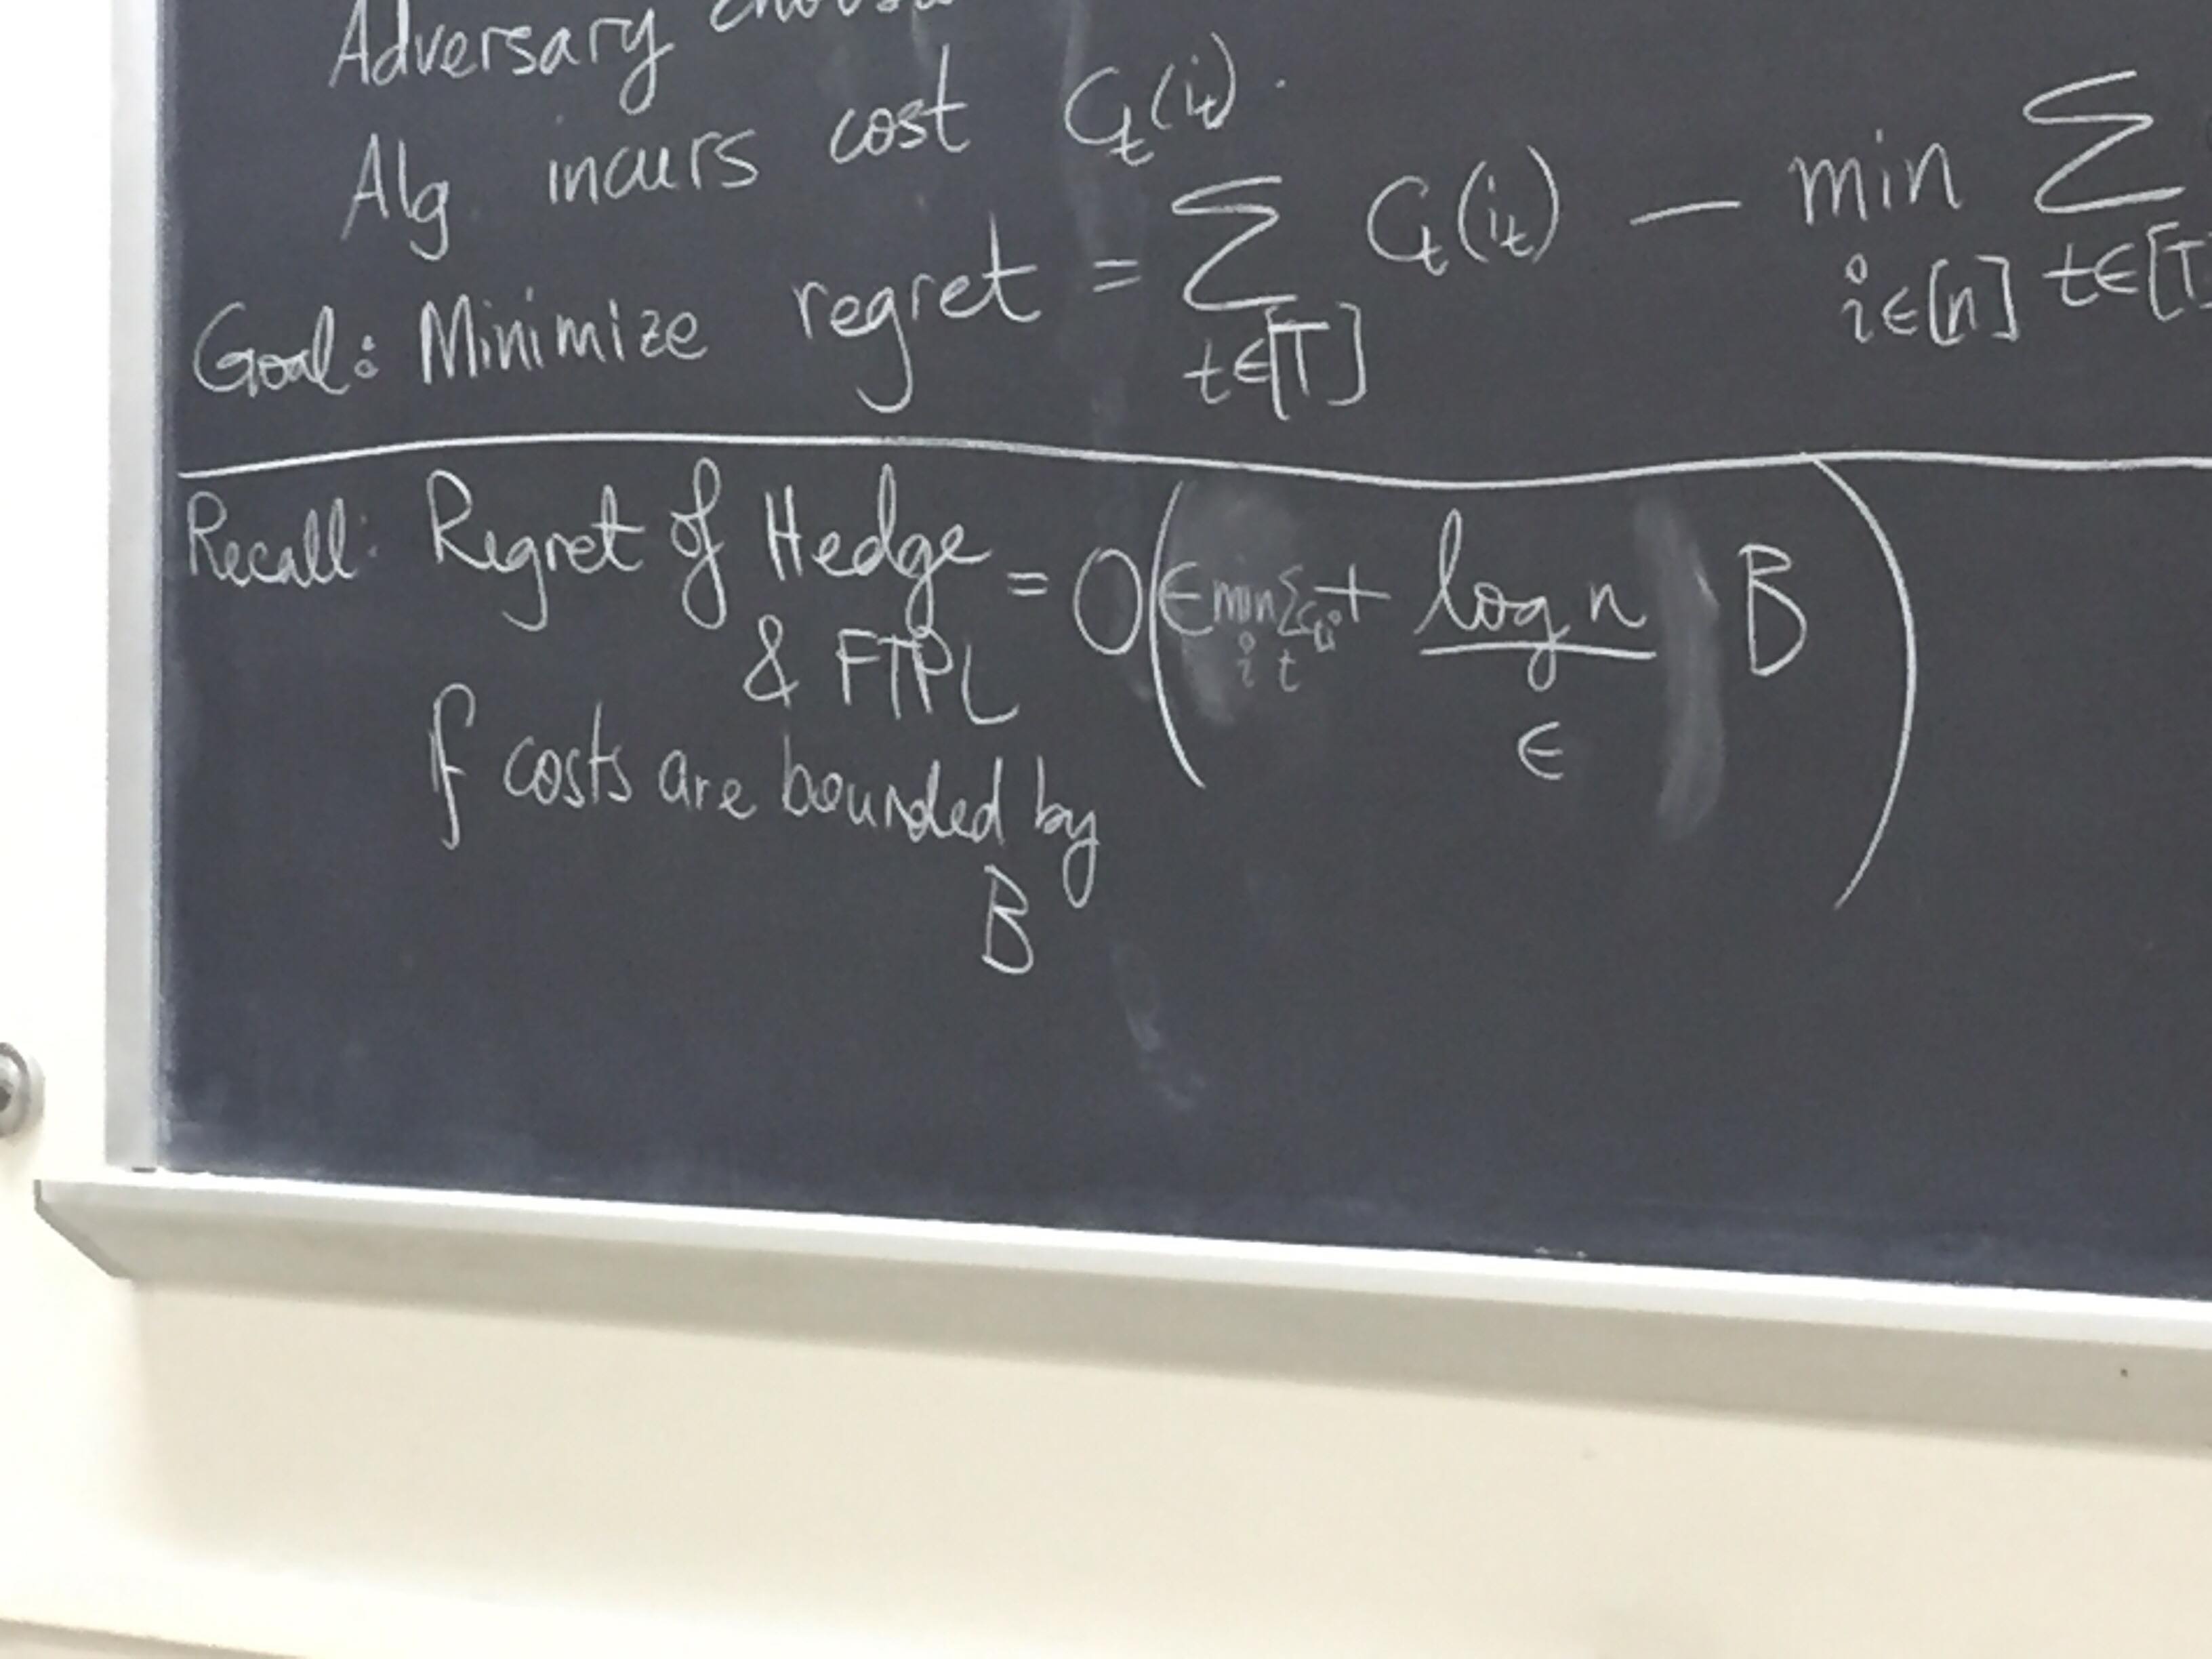 Adversary
Alg incurs cost C_t(i_t).
Goal: Minimize regret = ∑_{t∈[T]} C_t(i_t) — min_{i∈[n]} ∑_{t∈[T]}
Recall: Regret of Hedge & FTPL = O(ϵ min_i ∑_t C_t(i) + log n / ϵ B)
if costs are bounded by
B